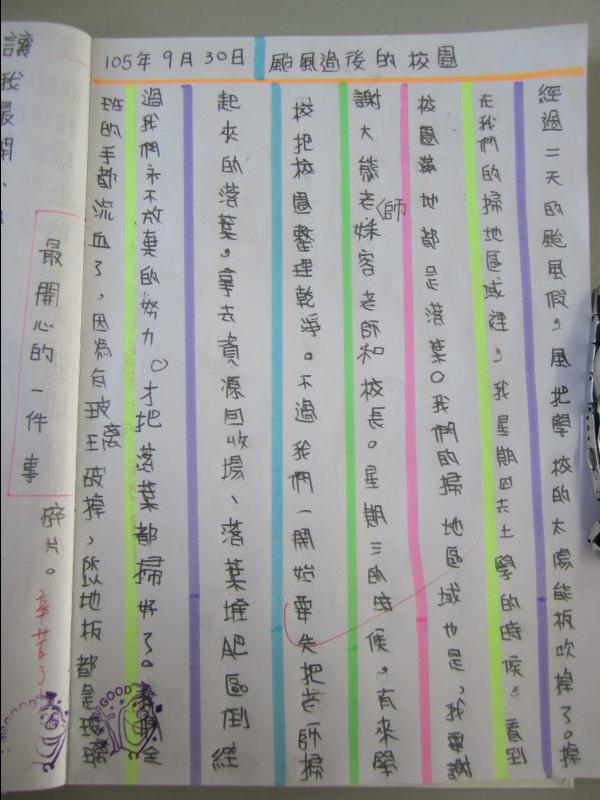 105年9月30日 颱風過後的校園
經過二天的颱風假，風把學校的太陽能板吹掉了。掉
在我們的掃地區域裡，我星期四去土學的時候，看到
校園滿地都是落葉。我們的掃地區域也是，我要謝
謝大熊老師妹容老師和校長。星期三的時候，有來學
校把校園整理乾淨。不過我們一開始要先把老師掃
起來的落葉，拿去資源回收場、落葉堆肥區倒經
過我們永不放棄的努力。才把落葉都掃好了。我們全
班的手都流血了，因為有玻璃破掉，所以地板都是玻璃
碎片。辛苦了
最開心的一件事
讓我最開、
GOOD
GOOD